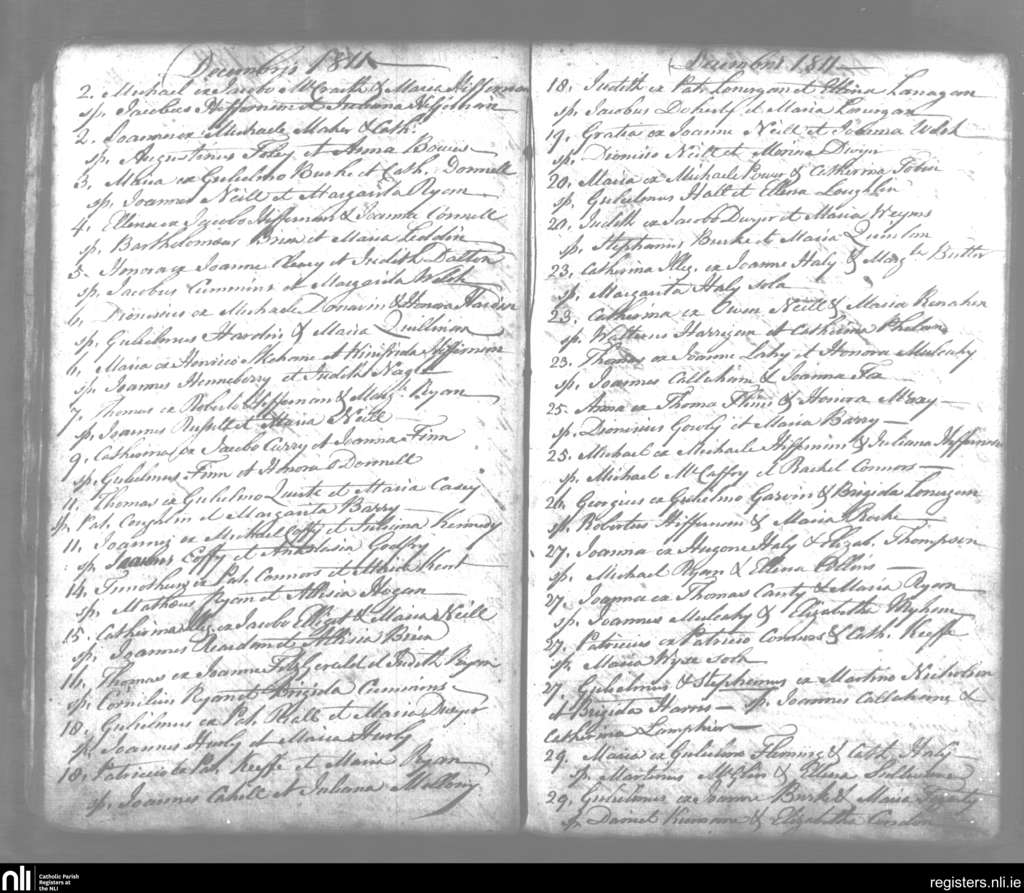 Decembris 1811
2. Michael ex Jacobo McCraith & Maria Hiffernan
sp. Jacobus Hiffernan et Juliana
2. Joanna ex Michaele Maher & Cath.
sp. Augustinus Foley et Anna Bowers
3. Maria ex Gulielmo Burke et Cath. Donnell
sp. Joannes Neill et Margarita Ryan
4. Ellena ex Jacobo Hiffernan & Joanna Connell
sp. Bartholomaeus Brien et Maria
5. Honora ex Joanne Cleary et Judith Dalton
sp. Jacobus Cummins et Margarita Welsh
6. Dionisius ex Michaele Donavin & Honora
sp. Gulielmus Hardin & Maria Quillinan
6. Maria ex Henrico Mehane et Winifrida Hiffernan
sp. Joannes Henneberry et Judith Nagle
7. Thomas ex Roberto Hiffernan & Marg. Ryan
sp. Joannes Russell et Maria Neill
9. Catherina ex Jacobo Curry et Joanna Finn
sp. Gulielmus Finn et Honora O Donnell
11. Thomas ex Gulielmo Quirke et Maria Casey
sp. Pat. et Margarita Barry
11. Joannes ex Michael Coffy et Juliana Kennedy
sp. Coffy et Anastasia Godfry
14. Timotheus ex Pat. Connors et Maria Kent
sp. Matheus Ryan et Allisia Hogan
15. Catherina Illeg. ex Jacobo Elligot & Maria Neill
sp. Joannes Reardon et Allisia Brien
16. Thomas ex Joanne Fitzgerald et Judith Ryan
sp. Cornelius Ryan et Brigida Cummins
18. Gulielmus ex Pat. Hall et Maria Dwyer
sp. Joannes Hurly et Maria Hurly
18. Patricius ex Pat. Keeffe et Maria Ryan
sp. Joannes Cahill et Juliana Mallony
Decembris 1811
18. Judith ex Pat. Lonergan et Ellena Lanagan
sp. Jacobus Doherty et Maria Lonergan
19. Gratia ex Joanne Neill et Joanna Welsh
sp. Dionisio Neill et Maria Dwyer
20. Maria ex Michaele Power & Catherina Tobin
sp. Gulielmus Hall et Ellena Loughlin
20. Judith ex Jacobo Dwyer et Maria Weyms
sp. Stephanus Burke et Maria Quinlan
23. Catherina Illeg. ex Joanne Haly & Marg. Butler
sp. Margarita Haly sola
23. Catherina ex Owen Neill & Maria Renahan
sp. Walterus Harrigan et Catherina Phelan
23. Thomas ex Joanne Lahy et Honora Mulcahy
sp. Joannes Callahane & Joanna Fox
25. Anna ex Thoma Flinn & Honora
sp. Dionisius Gowly et Maria Barry
25. Michael ex Michaele Hiffernan & Juliana Hiffernan
sp. Michael McCaffry et Rachel Connors
26. Georgius ex Gulielmo Garvin & Brigida Lonergan
sp. Robertus Hiffernan & Maria Roche
27. Joanna ex Hugone Haly & Elizab. Thompson
sp. Michael Ryan & Ellena Collins
27. Joanna ex Thomas Canty & Maria Ryan
sp. Joannes Mulcahy & Elizabetha
27. Patricius ex Patricio Connors & Cath. Keeffe
sp. Maria Wyse sola
27. Gulielmus & Stephanus ex Martino Nicholson
et Brigida Harris sp. Joannes Callahane &
Catherina Lamphier
29. Maria ex Gulielmo Fleming & Cath. Haly
sp. Martinus & Ellena Sullivane
29. Gulielmus ex Joanne Burke & Maria Fogarty
sp. Daniel & Elizabetha Condon
nli
Catholic Parish
Registers at
the NLI
registers.nli.ie